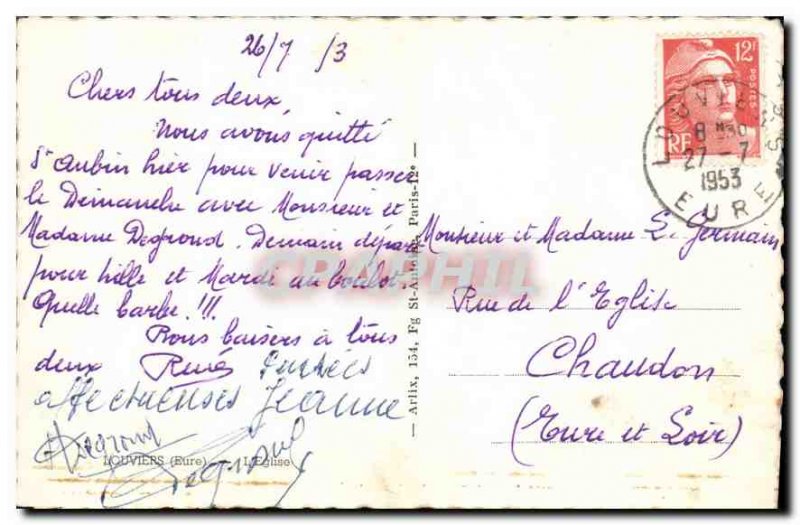 26/7 /3
Chers tous deux,
Nous avons quitté
St Aubin hier pour venir passer
le Dimanche avec Monsieur et
Madame Degroud. Demain départ
pour Lille et Mardi au boulot.
Quelle barbe !!!
Bons baisers à tous
deux René
affectueuses Jeanne
Degroud
LOUVIERS (Eure) L'Eglise
Arlix, 154, Fg St-Antoine, Paris-12e
12F
POSTES
RF
LOUVIERS
8 H30
27 - 7
1953
EURE
Monsieur et Madame L. Germain
Rue de l'Eglise
Chaudon
(Eure et Loir)
CPAPHIL